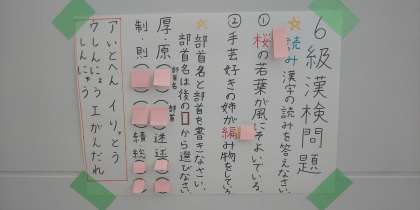 6級漢検問題
☆読み 漢字の読みを答えなさい。
①桜の若葉が風にそよいでいる。
②手芸好きの姉が編み物をしている
☆部首名と部首を書きなさい。
部首名は後の□から選びなさい。
部首名 部首
厚・原( )( )述述
制・則( )( )績総( )( )
アいとへん イりっとう
ウしんにょう エがんだれ
しんにゅう